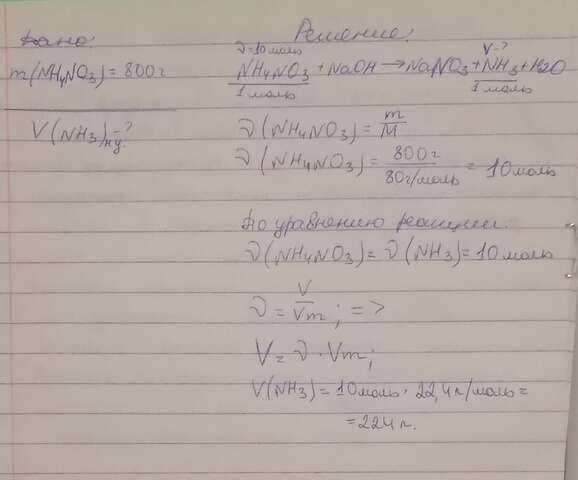 Дано:
m(NH4NO3)=800г
V(NH3)н.у.-?
Решение:
ν=10моль V-?
NH4NO3+NaOH→NaNO3+NH3+H2O
1моль 1моль
ν(NH4NO3)=m/M
ν(NH4NO3)=800г/80г/моль=10моль
По уравнению реакции:
ν(NH4NO3)=ν(NH3)=10моль
ν=V/Vm;=>
V=ν·Vm;
V(NH3)=10моль·22,4л/моль=
=224л.